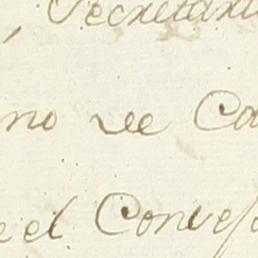 , Secretari
no de Ca
e el Conves